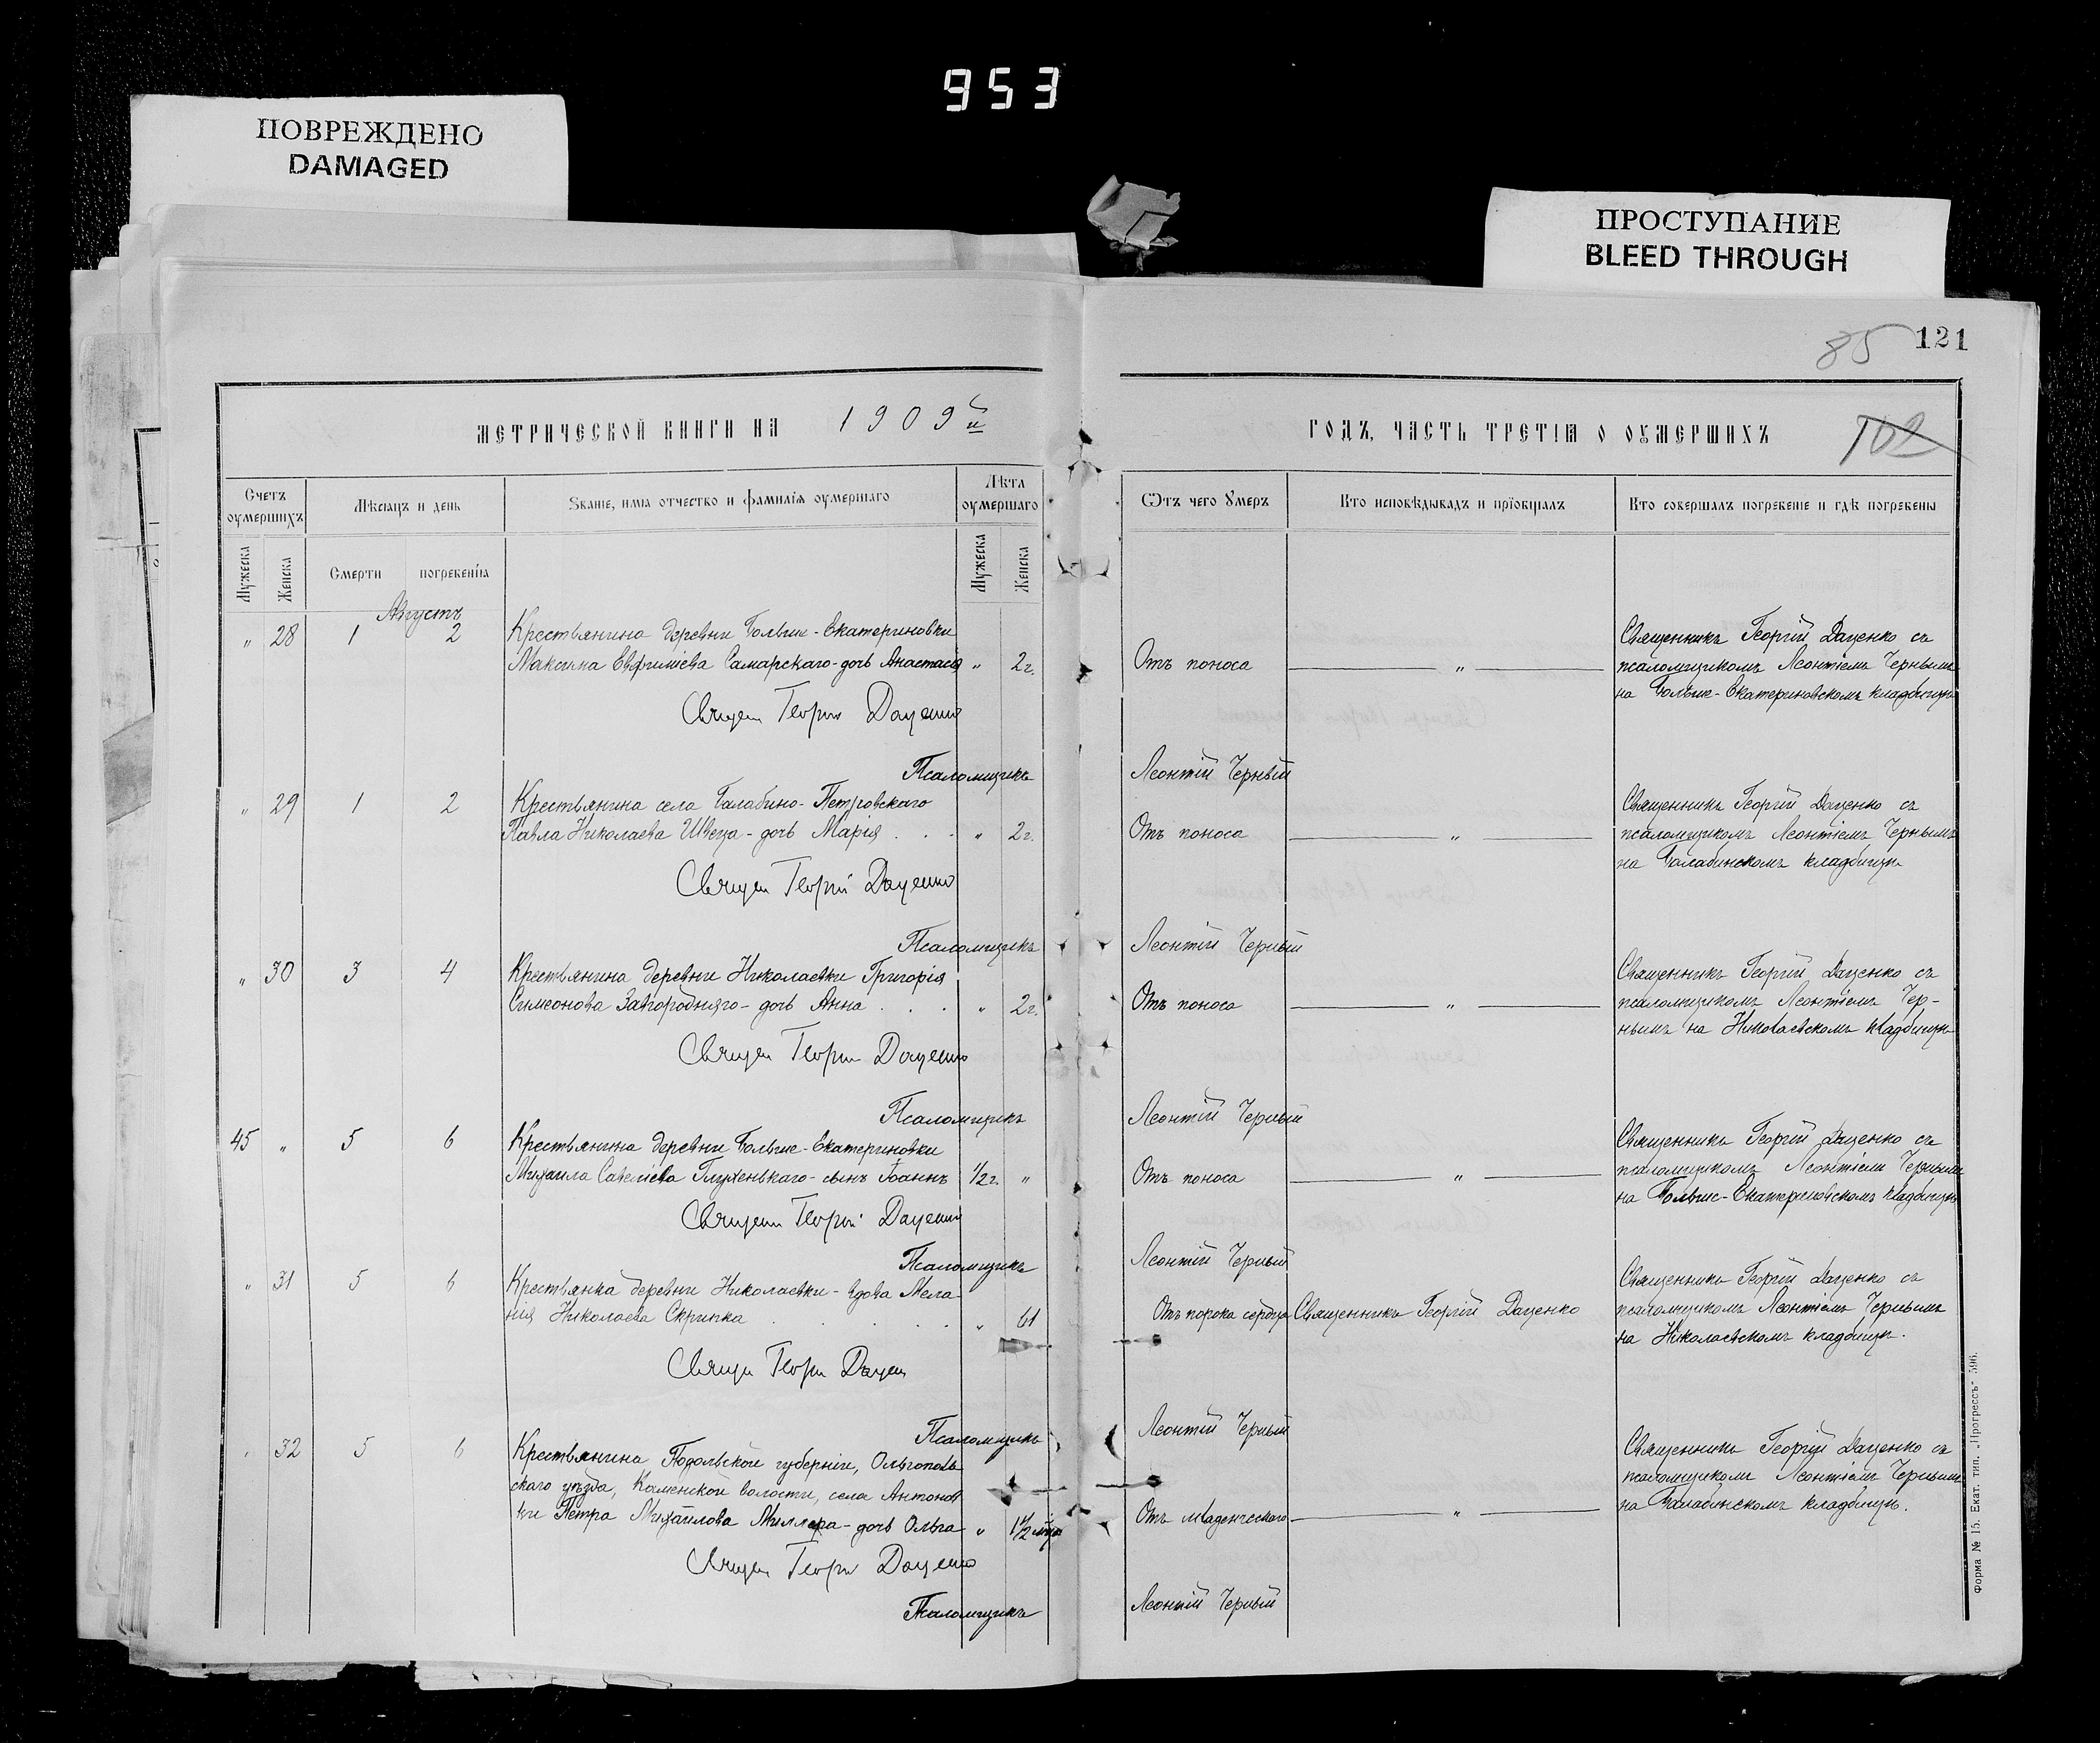 953
ПОВРЕЖДЕНО
DAMAGED
ПРОСТУПАНИЕ
BLEED THROUGH
85 121
МЕТРИЧЕСКОЙ КНИГИ НА 1909й
ГОДЪ, ЧАСТЬ ТРЕТІѦ О ОУМЕРШИХЪ
102
Счетъ оумершихъ
Мѣсѧцъ и день
Званіе, имѧ отчество и фамиліѧ оумершаго
Лѣта оумершаго
Ѿтъ чего оумеръ
Кто исповѣдывалъ и прїобщалъ
Кто совершалъ погребеніе и гдѣ погребены
Мужеска
Женска
Смерти
погребеніѧ
Мужеска
Женска
Августъ
" 28 1 2 Крестьянина деревни Больше-Екатериновки
Максима Евфиміева Самарскаго-дочь Анастасія " 2г.
Отъ поноса "
Священникъ Георгій Даценко съ
псаломщикомъ Леонтіемъ Чернымъ
на Больше-Екатериновскомъ кладбищѣ
Священ Георгій Даценко
Псаломщикъ Леонтій Черный
" 29 1 2 Крестьянина села Балабино-Петровскаго
Павла Николаева Швеца-дочь Марія . . . " 2г.
Отъ поноса "
Священникъ Георгій Даценко съ
псаломщикомъ Леонтіемъ Чернымъ
на Балабинскомъ кладбищѣ
Священ Георгій Даценко
Псаломщикъ Леонтій Черный
" 30 3 4 Крестьянина деревни Николаевки Григорія
Симеонова Загородняго-дочь Анна . . . " 2г.
Отъ поноса "
Священникъ Георгій Даценко съ
псаломщикомъ Леонтіемъ Чер-
нымъ на Николаевскомъ кладбищѣ
Священ Георгій Даценко
Псаломщикъ Леонтій Черный
45 " 5 6 Крестьянина деревни Больше-Екатериновки
Михаила Савеліева Глухенькаго-сынъ Іоаннъ 1/2г. "
Отъ поноса "
Священникъ Георгій Даценко съ
псаломщикомъ Леонтіемъ Чернымъ
на Больше-Екатериновскомъ кладбищѣ
Священ Георгій Даценко
Псаломщикъ Леонтій Черный
" 31 5 6 Крестьянка деревни Николаевки-вдова Мела-
нія Николаева Скрипка . . . . . " 61
Отъ порока сердца Священникъ Георгій Даценко
Священникъ Георгій Даценко съ
псаломщикомъ Леонтіемъ Чернымъ
на Николаевскомъ кладбищѣ.
Священ Георгій Дацен
Псаломщикъ Леонтій Черный
" 32 5 6 Крестьянина Подольской губерніи, Ольгополь-
скаго уѣзда, Каменской волости, села Антонов-
ки Петра Михайлова Миллера-дочь Ольга " 1 1/2 мѣся
Отъ младенческаго "
Священникъ Георгій Даценко съ
псаломщикомъ Леонтіемъ Чернымъ
на Балабинскомъ кладбищѣ.
Священ Георгій Даценко
Псаломщикъ Леонтій Черный
Форма № 15. Екат. тип. „Прогрессъ" 596.